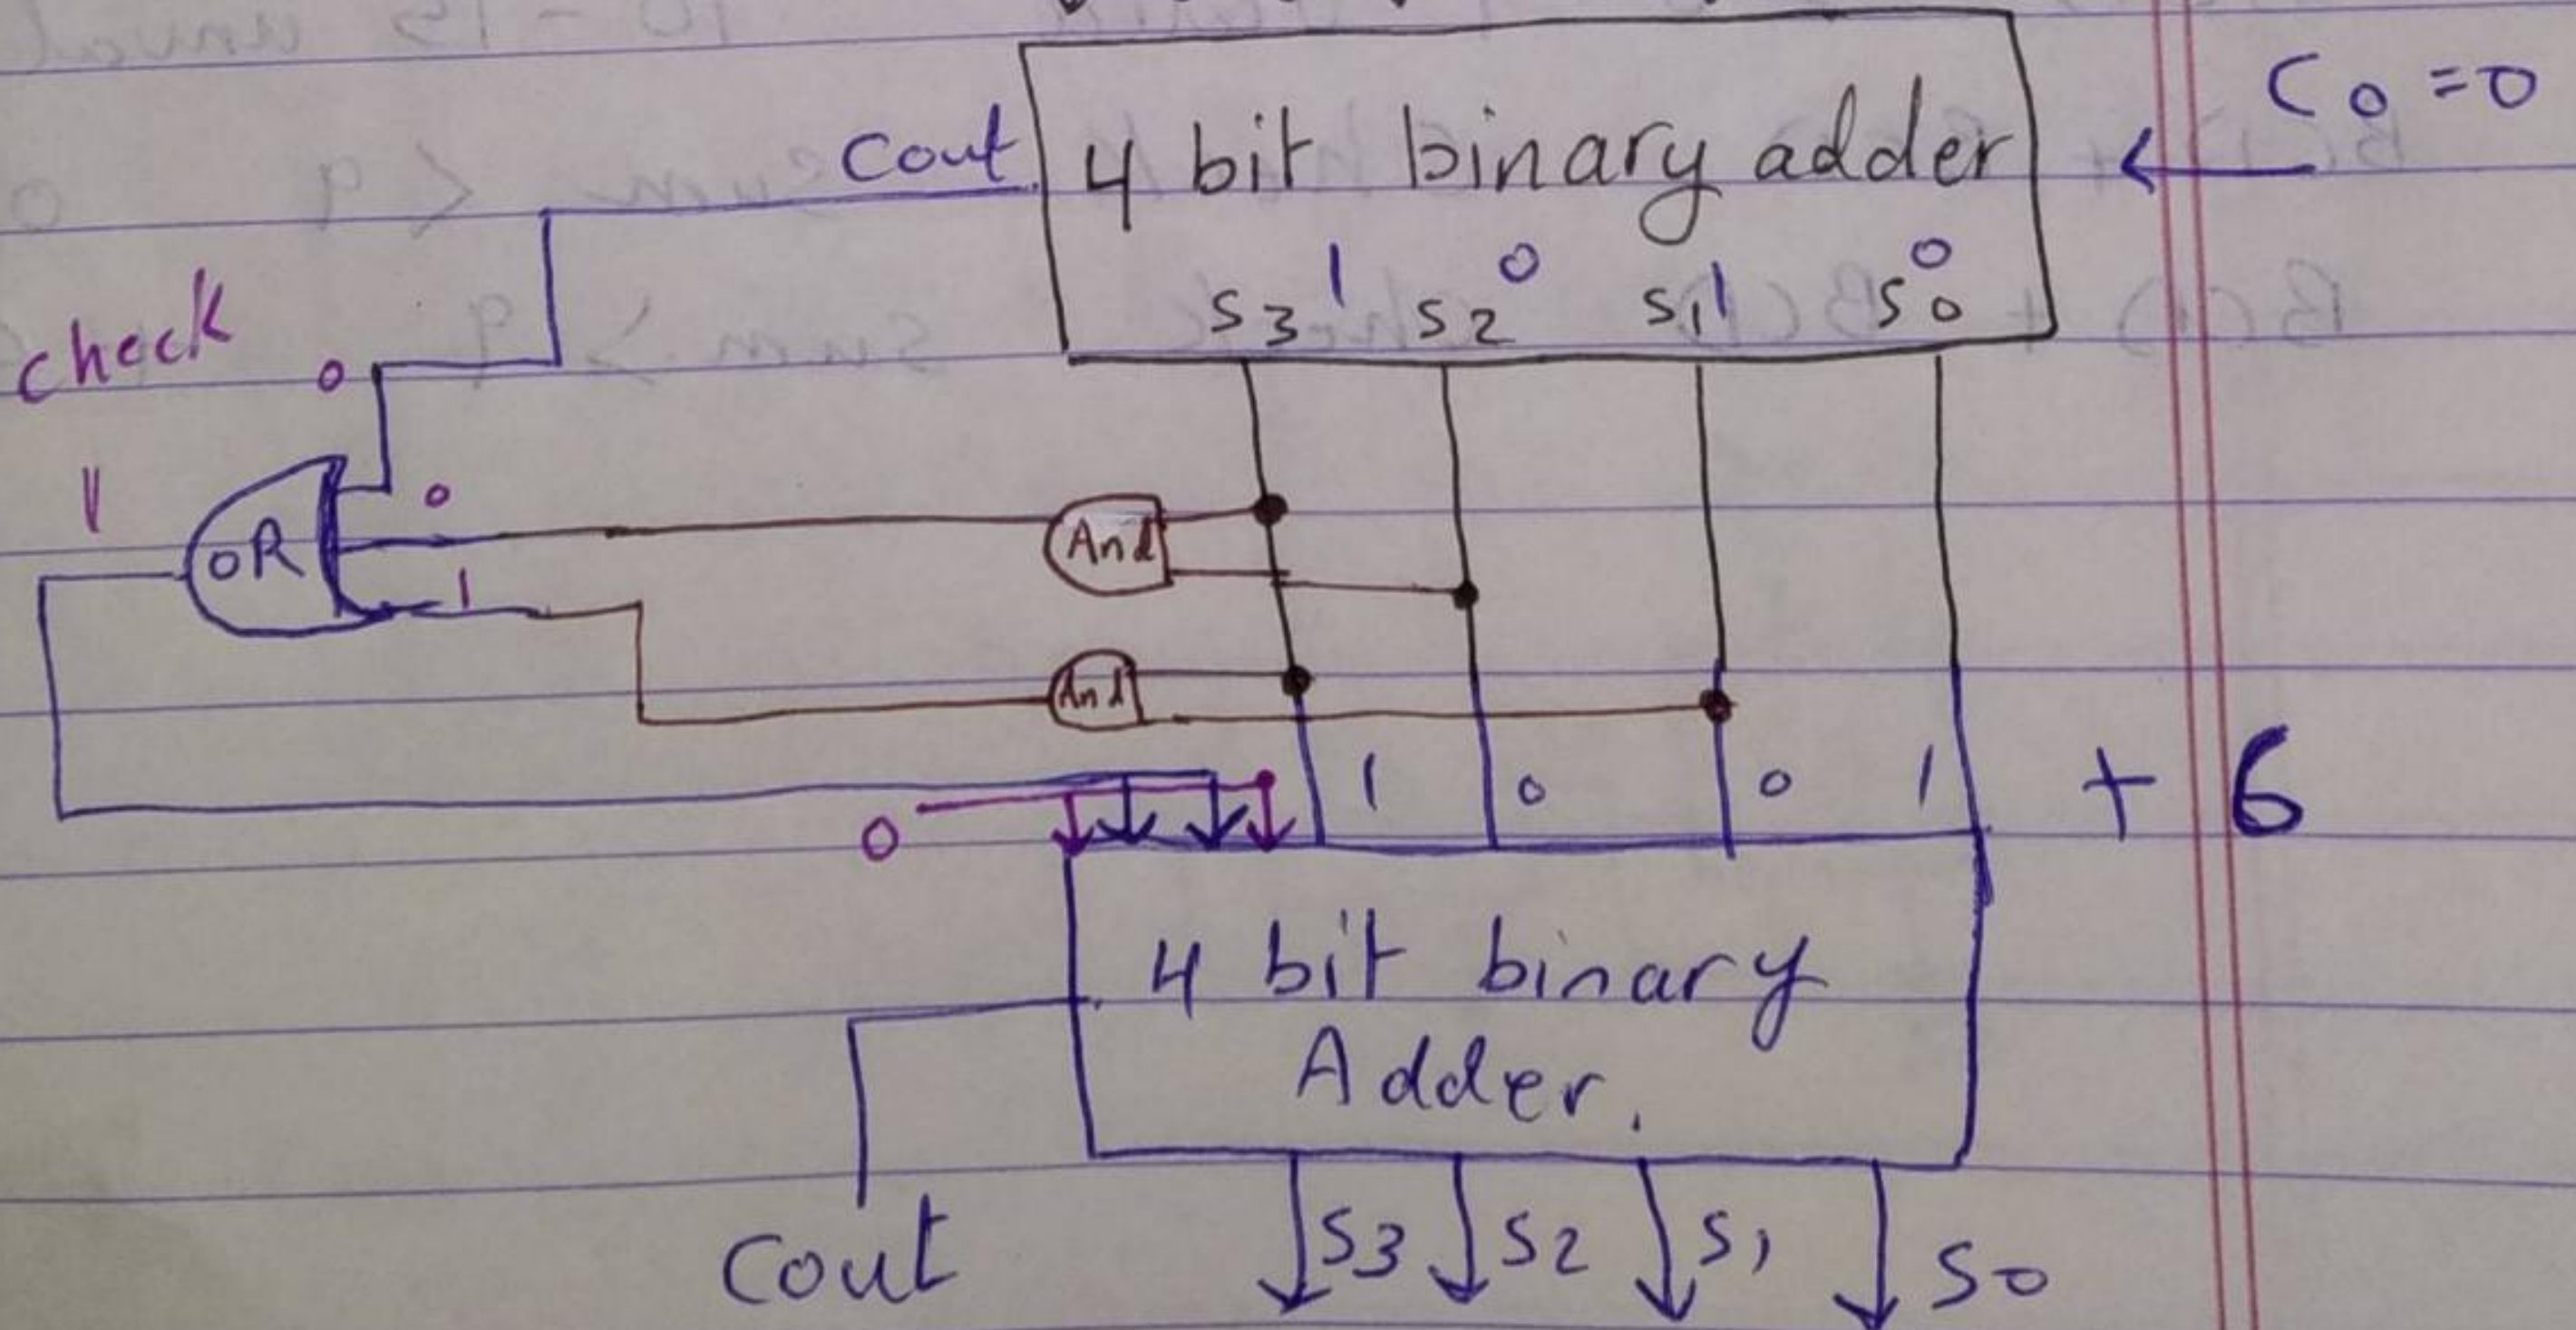 C0 = 0
Cout
4 bit binary adder
1 0 1 0
S3 S2 S1 S0
check
0
1
0
OR
1
And
And
1 0 0 1
+ 6
0
4 bit binary
Adder.
Cout
S3 S2 S1 S0